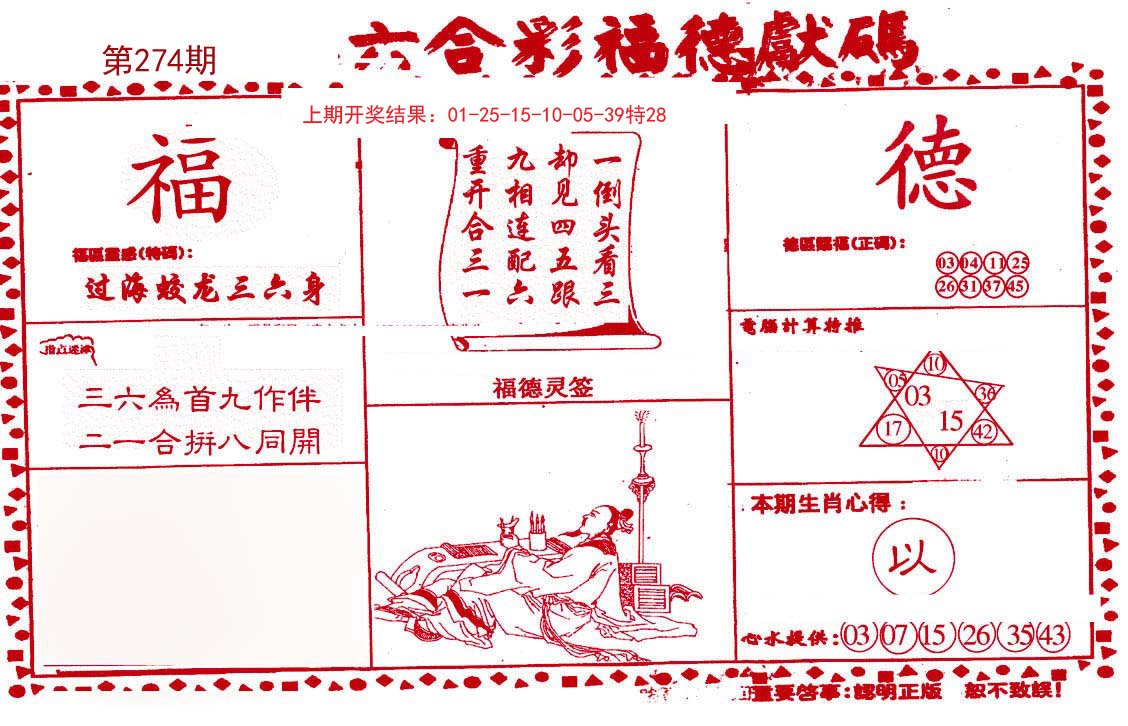 六合彩福德獻碼
第274期
上期开奖结果：01-25-15-10-05-39特28
福
福區靈感(特碼)：
过海蛟龙三六身
指点迷津
三六為首九作伴
二一合拼八同開
一倒头看三
却见四五跟
九相连配六
重开合三一
福德灵签
德
德區賜福(正碼)：
03 04 11 25
26 31 37 45
電腦計算特推
10
05
03
36
15
17
42
10
本期生肖心得：
以
心水提供：03 07 15 26 35 43
重要啓事：認明正版 恕不致誤！